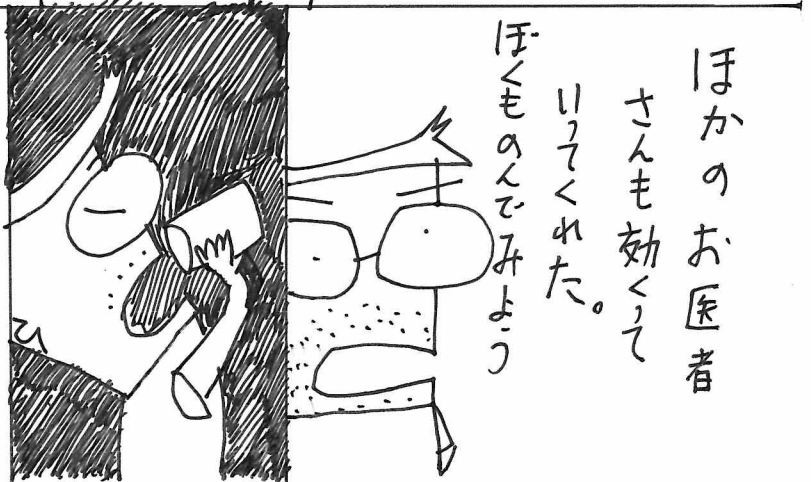 ほかのお医者
さんも効くって
いってくれた。
ぼくものんでみよう